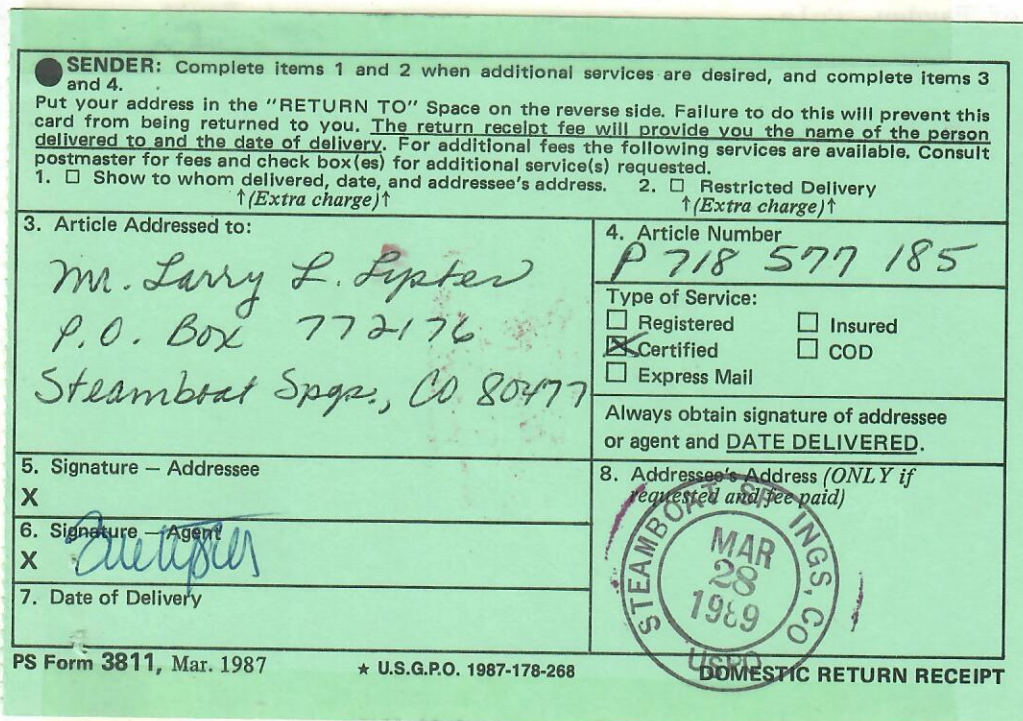 SENDER: Complete items 1 and 2 when additional services are desired, and complete items 3
and 4.
Put your address in the "RETURN TO" Space on the reverse side. Failure to do this will prevent this
card from being returned to you. The return receipt fee will provide you the name of the person
delivered to and the date of delivery. For additional fees the following services are available. Consult
postmaster for fees and check box(es) for additional service(s) requested.
1. ☐ Show to whom delivered, date, and addressee's address. 2. ☐ Restricted Delivery
↑(Extra charge)↑ ↑(Extra charge)↑
3. Article Addressed to:
Mr. Larry L. Lypter
P.O. Box 772176
Steamboat Spgs., CO 80477
4. Article Number
P 718 577 185
Type of Service:
☐ Registered ☐ Insured
☒ Certified ☐ COD
☐ Express Mail
Always obtain signature of addressee
or agent and DATE DELIVERED.
5. Signature — Addressee
X
6. Signature — Agent
X
7. Date of Delivery
8. Addressee's Address (ONLY if
requested and fee paid)
STEAMBOAT SP INGS, CO
MAR
28
1989
USPO
PS Form 3811, Mar. 1987 ★ U.S.G.P.O. 1987-178-268 DOMESTIC RETURN RECEIPT